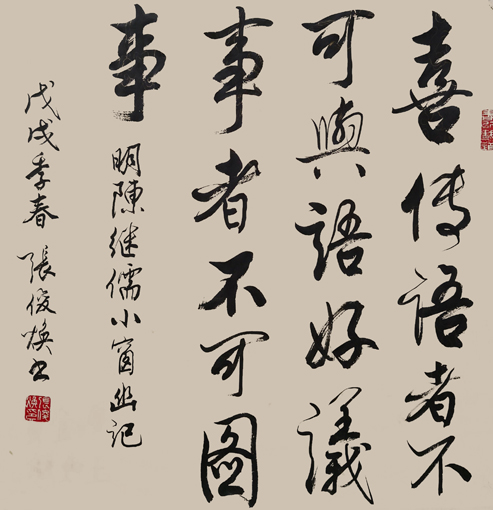 喜傳語者不
可與語好議
事者不可圖
事
明陳继儒小窗幽记
戊戌季春張俊煥书